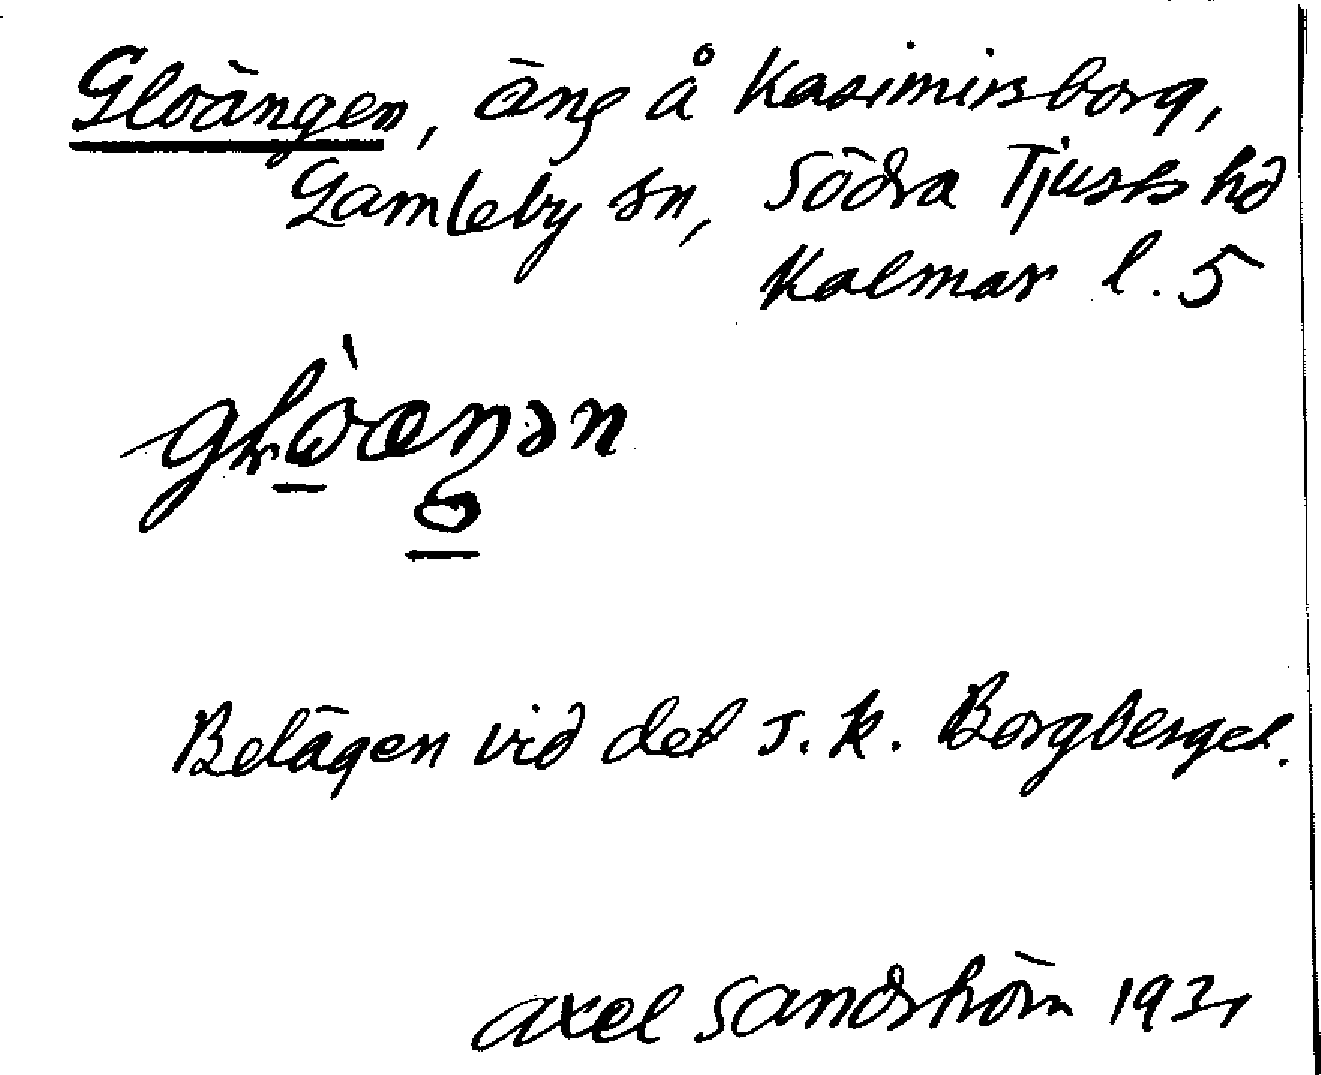 Gloängen, äng å Kasimirsborg,
Gamleby sn, Södra Tjusts hd
Kalmar l. 5
Belägen vid det s. k. Borgberget.
Axel Sandström 1931